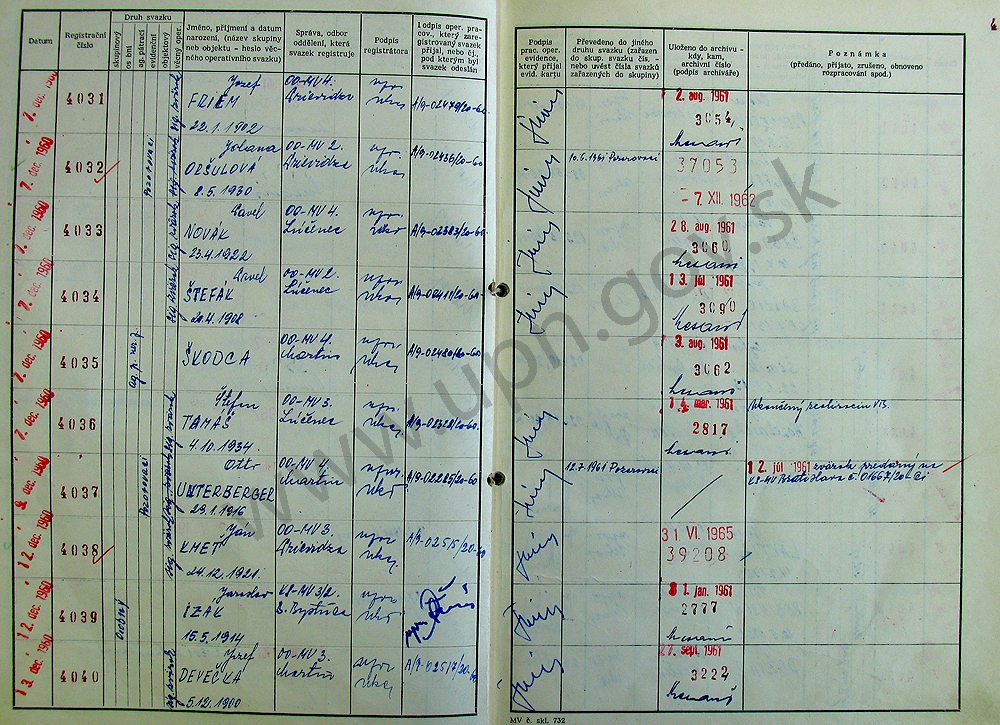 Datum
Registrační číslo
Druh svazku
skupinový
osobní
ag. pátrací
evidenční
objektový
věcný oper.
Jméno, příjmení a datum
narození, (název skupiny
neb objektu - heslo věc-
ného operativního svazku)
Správa, odbor
oddělení, která
svazek registruje
Podpis
registrátora
Podpis oper. pra-
cov., který zare-
gistrovaný svazek
přijal, neb čj.
pod kterým byl
svazek odeslán
Podpis
prac. oper.
evidence,
který přijal
evid. kartu
Převedeno do jiného
druhu svazku (zařazen
do skup. svazku čís. -
nebo uvést čísla svazků
zařazených do skupiny)
Uloženo do archivu -
kdy, kam,
archivní číslo
(podpis archiváře)
Poznámka
(předáno, přijato, zrušeno, obnoveno
rozpracování spod.)
7. dec. 1960
4031
Jozef
FRIEM
22.1.1902
OO-MV 4.
Prievidza
A/9-02479/20-60
2. aug. 1961
3054
7. dec. 1960
4032
Pozorovací
Johana
ORŠULOVÁ
8.5.1930
OO-MV 2.
Prievidza
A/9-02436/20-60
10.6.1961 Pozorovací
37053
- 7. XII. 1962
7. dec. 1960
4033
Pavel
NOVÁK
23.4.1922
OO-MV 4.
Lučenec
A/9-02383/20-60
28. aug. 1961
3060
7. dec. 1960
4034
Pavel
ŠTEFÁK
20.4.1908
OO-MV 2.
Lučenec
A/9-02411/20-60
13. júl 1961
3090
7. dec. 1960
4035
ŠKODCA
OO-MV 4.
Martin
A/9-02480/20-60
3. aug. 1961
3062
7. dec. 1960
4036
Štefan
TAMÁŠ
4.10.1934
OO-MV 3.
Lučenec
A/9-02328/20-60
14. mar. 1961
2817
Ukončený realizaciou VTS.
9. dec. 1960
4037
Pozorovací
Otto
UNTERBERGER
29.1.1916
OO-MV 4.
Martin
A/9-02285/20-60
12.7.1961 Pozorovací
12. júl 1961 zväzok predaný na
KS-MV Bratislava č. 01667/20
12. dec. 1960
4038
Ján
KMEŤ
24.12.1921.
OO-MV 3.
Prievidza
A/9-02515/20-60
31 VI. 1965
39208
12. dec. 1960
4039
osobný
Jaroslav
IZÁK
15.5.1914
KS-MV 3/2.
B. Bystrica
31. jan. 1961
2777
13. dec. 1960
4040
Jozef
DEVEČKA
5.12.1900
OO-MV 3.
Martin
A/9-02517/20-60
27. sept. 1961
3222
MV č. skl. 732
www.upn.gov.sk